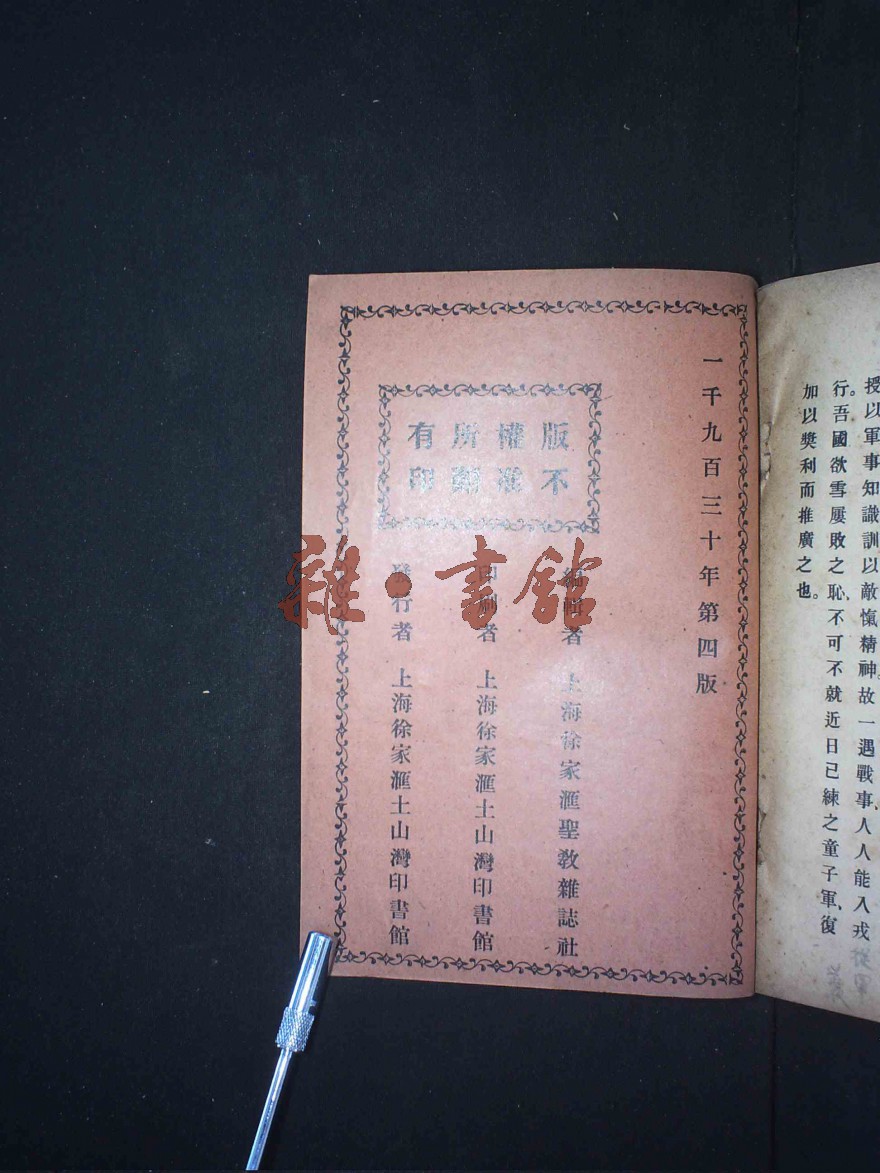 授以軍事知識、訓以敵愾精神。故一遇戰事、人人能入戎
行。吾國欲雪屢敗之恥、不可不就近日已練之童子軍、復
加以獎利而推廣之也。
一千九百三十年第四版
版權所有
不准翻印
編輯者 上海徐家滙聖教雜誌社
印刷者 上海徐家滙土山灣印書館
發行者 上海徐家滙土山灣印書館
雜·書館